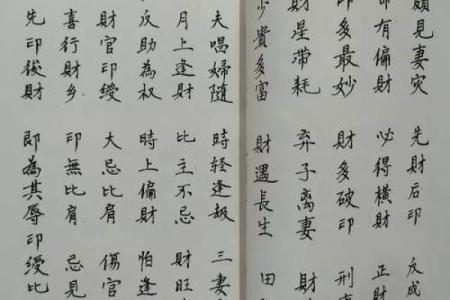 頗見妻灾 先財后印 反成
命有偏財 必得橫財 正財
印多最妙 財多破印 刑
財星帶耗 弃子离妻 財
少貴多富 財遇長生 田
夫唱婦隨 時轻逢 三妻
月上逢財 比主不忌 財旺
反助為权 時上偏財 怕逢
財官印绶 大忌比肩 傷官
喜行財乡 印無比肩 忌見
先印後財 即為其辱 印绶比